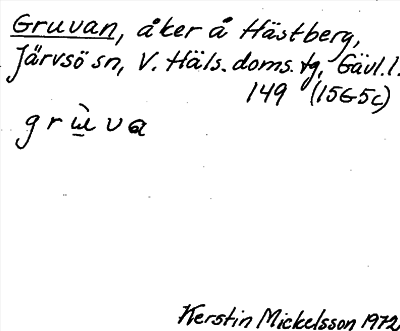 Gruvan, åker å Hästberg,
Järvsö sn, V. Häls. doms. tg, Gävl. l.
149 (15G5c)
grù̱va
Kerstin Mickelsson 1972